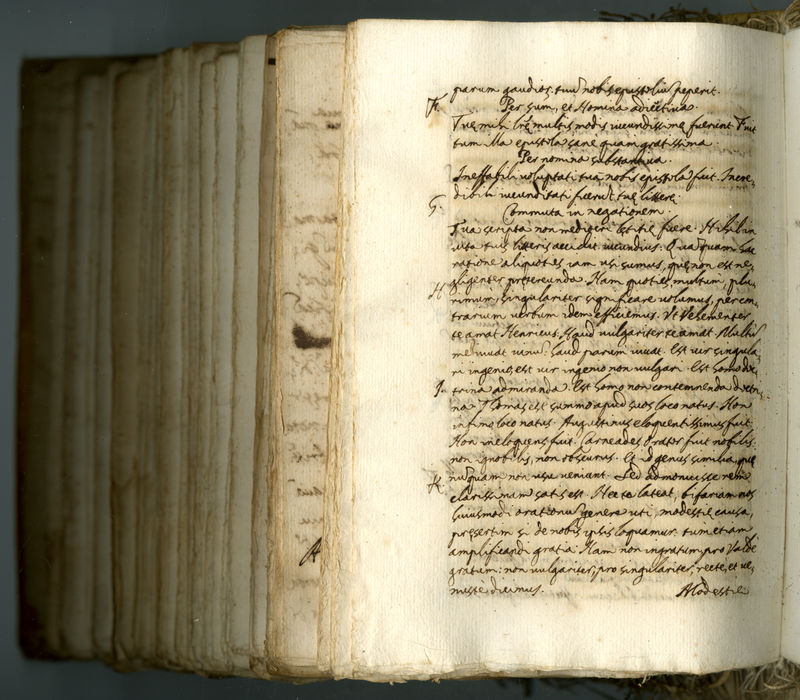 parum gaudior. tuū nobis epistoliū peperit.
F. Per sum, et Nomina adiectiua.
Tuę mihi lrę multis modis iucundissimę fuerunt. Fuit
tum illa epistola sanè quam gratissima.
Per nomina substantiua.
Ineffabili voluptati tua nobis epistola fuit. Incre,
dibili iucunditati fuerūt tuę litterę
G. Commuta in negationem.
Tua scripta non mediocri lętitię fuere. Nihil in
uita tuis litteris accidit iucundius. Qua quam hac
ratione aliquoties iam usi sumus, quę non est ne,
gligenter pretereunda. Nam quoties multum, plu,
H rimum, singulariter significare uolumus, per con,
trarium uerbum idem efficiemus. Vt Vehementer
te amat Henricus. Haud uulgariter te amat. Multū
me iuuat uinū. haud parum iuuat. Est vir singula,
ri ingenio, est vir ingenio non uulgari. Est homo doc,
I. trina admiranda. Est homo non contemnenda doctri,
na. Thomas est summo apud suos loco natus. Non
infimo loco natus. Augustinus eloquentissimus fuit
Non ineloquens fuit. Carneades Orator fuit nobilis.
non ignobilis, non obscurus. Et id genus similia, quę
K nusquam non usu ueniant. Sed admonuisse rem
clarissimam satis est. Nec te lateat, bifariam nos
huiusmodi orationū genere uti, modestię causa,
presertim si de nobis ipsis loquamur. tum etiam
amplificandi gratia. Nam non ingratum, pro Valde
gratum: non uulgariter, pro singulariter, recte, et ue,
nustè dicimus. Modestię
A